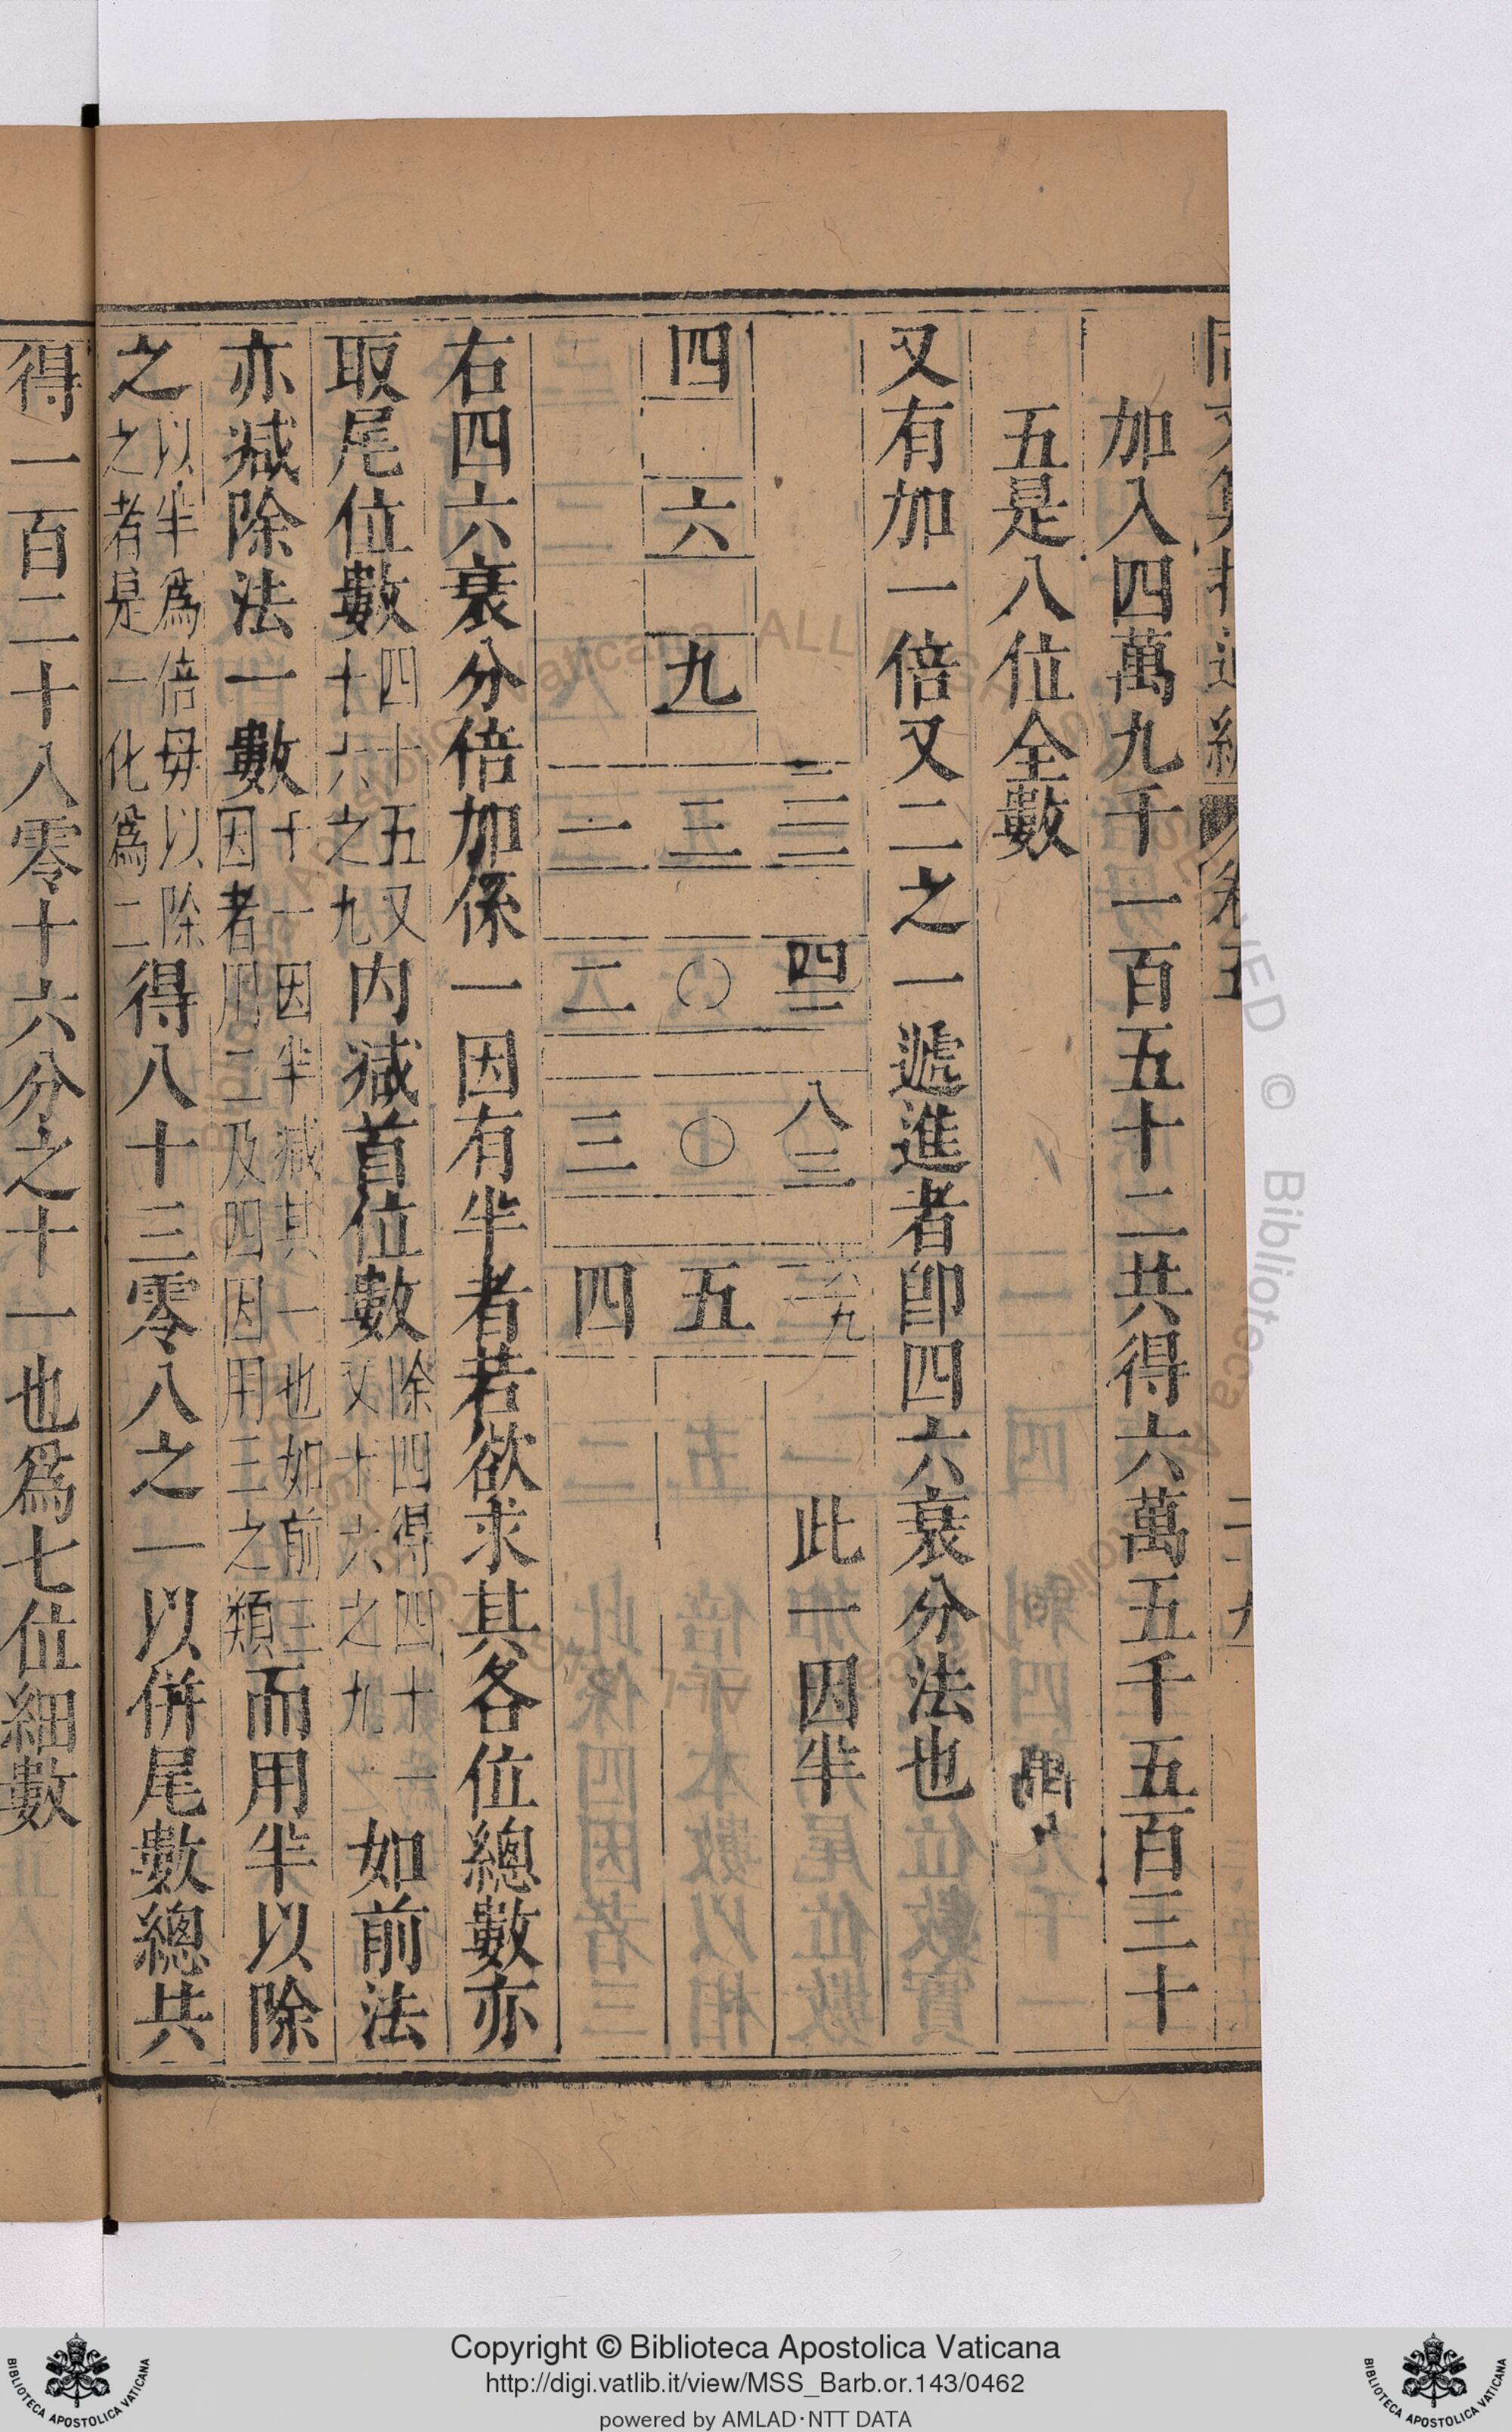 加入四萬九千一百五十二共得六萬五千五百三十
五是八位全數
又有加一倍又二之一遞進者卽四六衰分法也
八三
此一因半
四 六 九 三 〇 〇 五
一 二 三 四
右四六衰分倍加係一因有半者若欲求其各位總數亦
取尾位數四十五又十六之九内减首位數除四得四十一又十六之九如前法
亦减除法一數十一因半减其一也如前三因者用二及四因用三之類而用半以除
之以半爲倍毋以除之者是一化爲二得八十三零八之一以併尾數總共
得一百二十八零十六分之十一也爲七位細數
Copyright © Biblioteca Apostolica Vaticana
http://digi.vatlib.it/view/MSS_Barb.or.143/0462
powered by AMLAD·NTT DATA
BIBLIOTECA APOSTOLICA VATICANA
BIBLIOTECA APOSTOLICA VATICANA